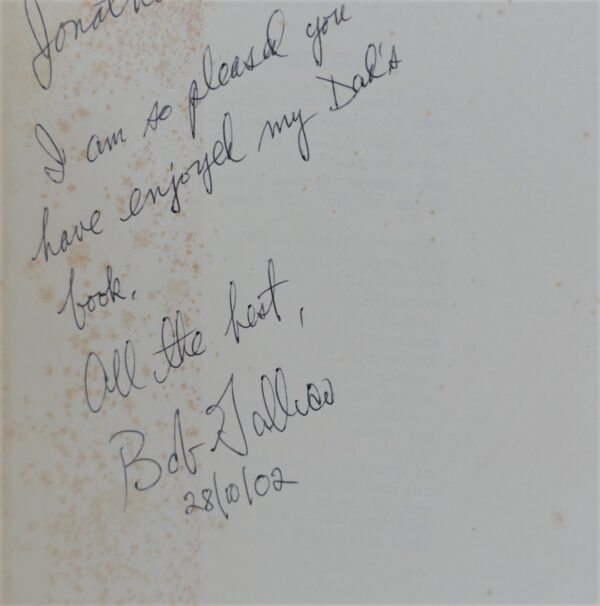 I am so pleased you
have enjoyed my Dad's
book.
All the best,
Bob Gallico
28/10/02